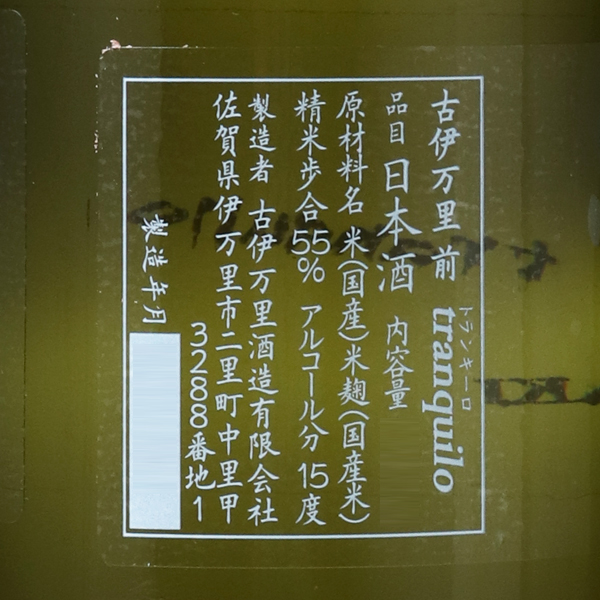 古伊万里 前 tranquilo
トランキーロ
品目 日本酒 内容量
原材料名 米(国産)米麹(国産米)
精米歩合55% アルコール分 15度
製造者 古伊万里酒造有限会社
佐賀県伊万里市二里町中里甲
3288番地1
製造年月